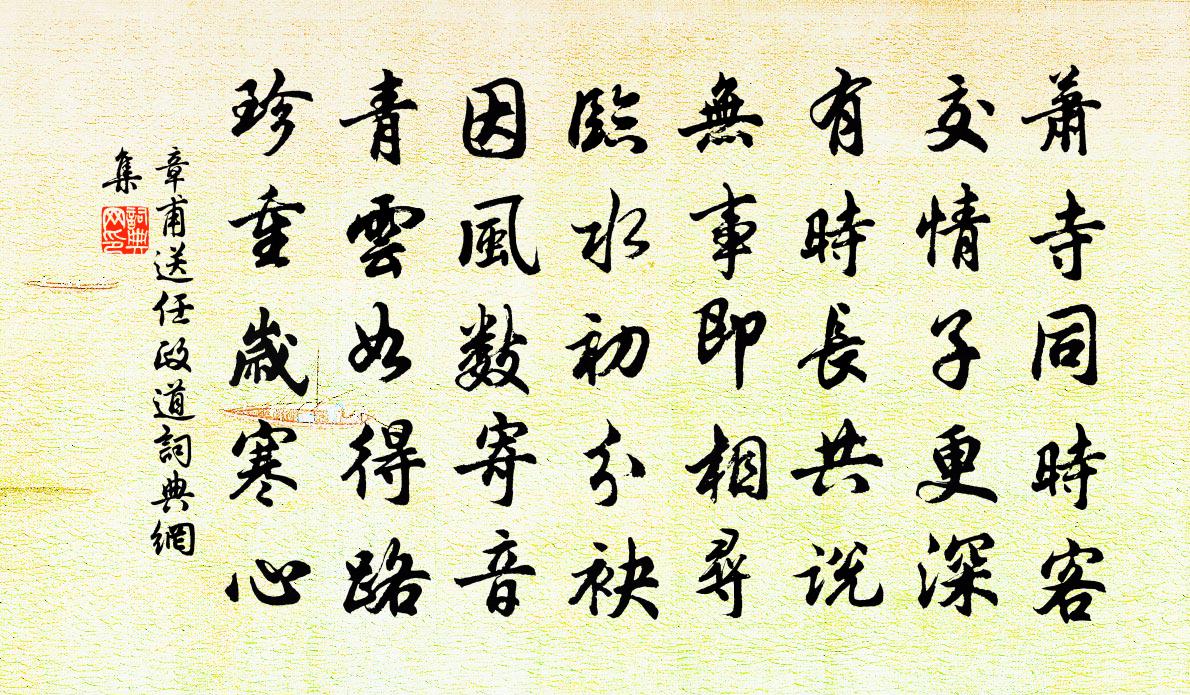 蕭寺同時客
交情子更深
有時長共說
無事即相尋
臨水初分袂
因風數寄音
青雲如得路
珍重歲寒心
章甫送任政道詞典網
集
詞典
网印